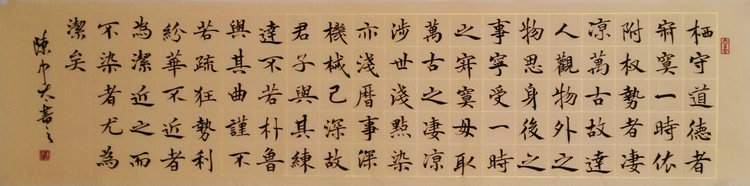 栖守道德者
寂寞一時依
附权勢者凄
凉萬古故達
人觀物外之
物思身後之
事寧受一時
之寂寞毋取
萬古之凄凉
涉世淺點染
亦淺曆事深
機械已深故
君子與其練
達不若朴魯
與其曲謹不
若疏狂勢利
紛華不近者
為潔近之而
不染者尤為
潔矣
陳中